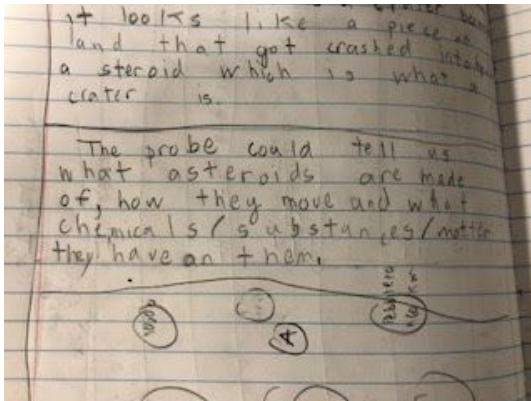 it looks like a piece of
land that got crashed into by
a steroid which is what a
crater is.
The probe could tell us
what asteroids are made
of, how they move and what
chemicals/substances/matter
they have on them.
A